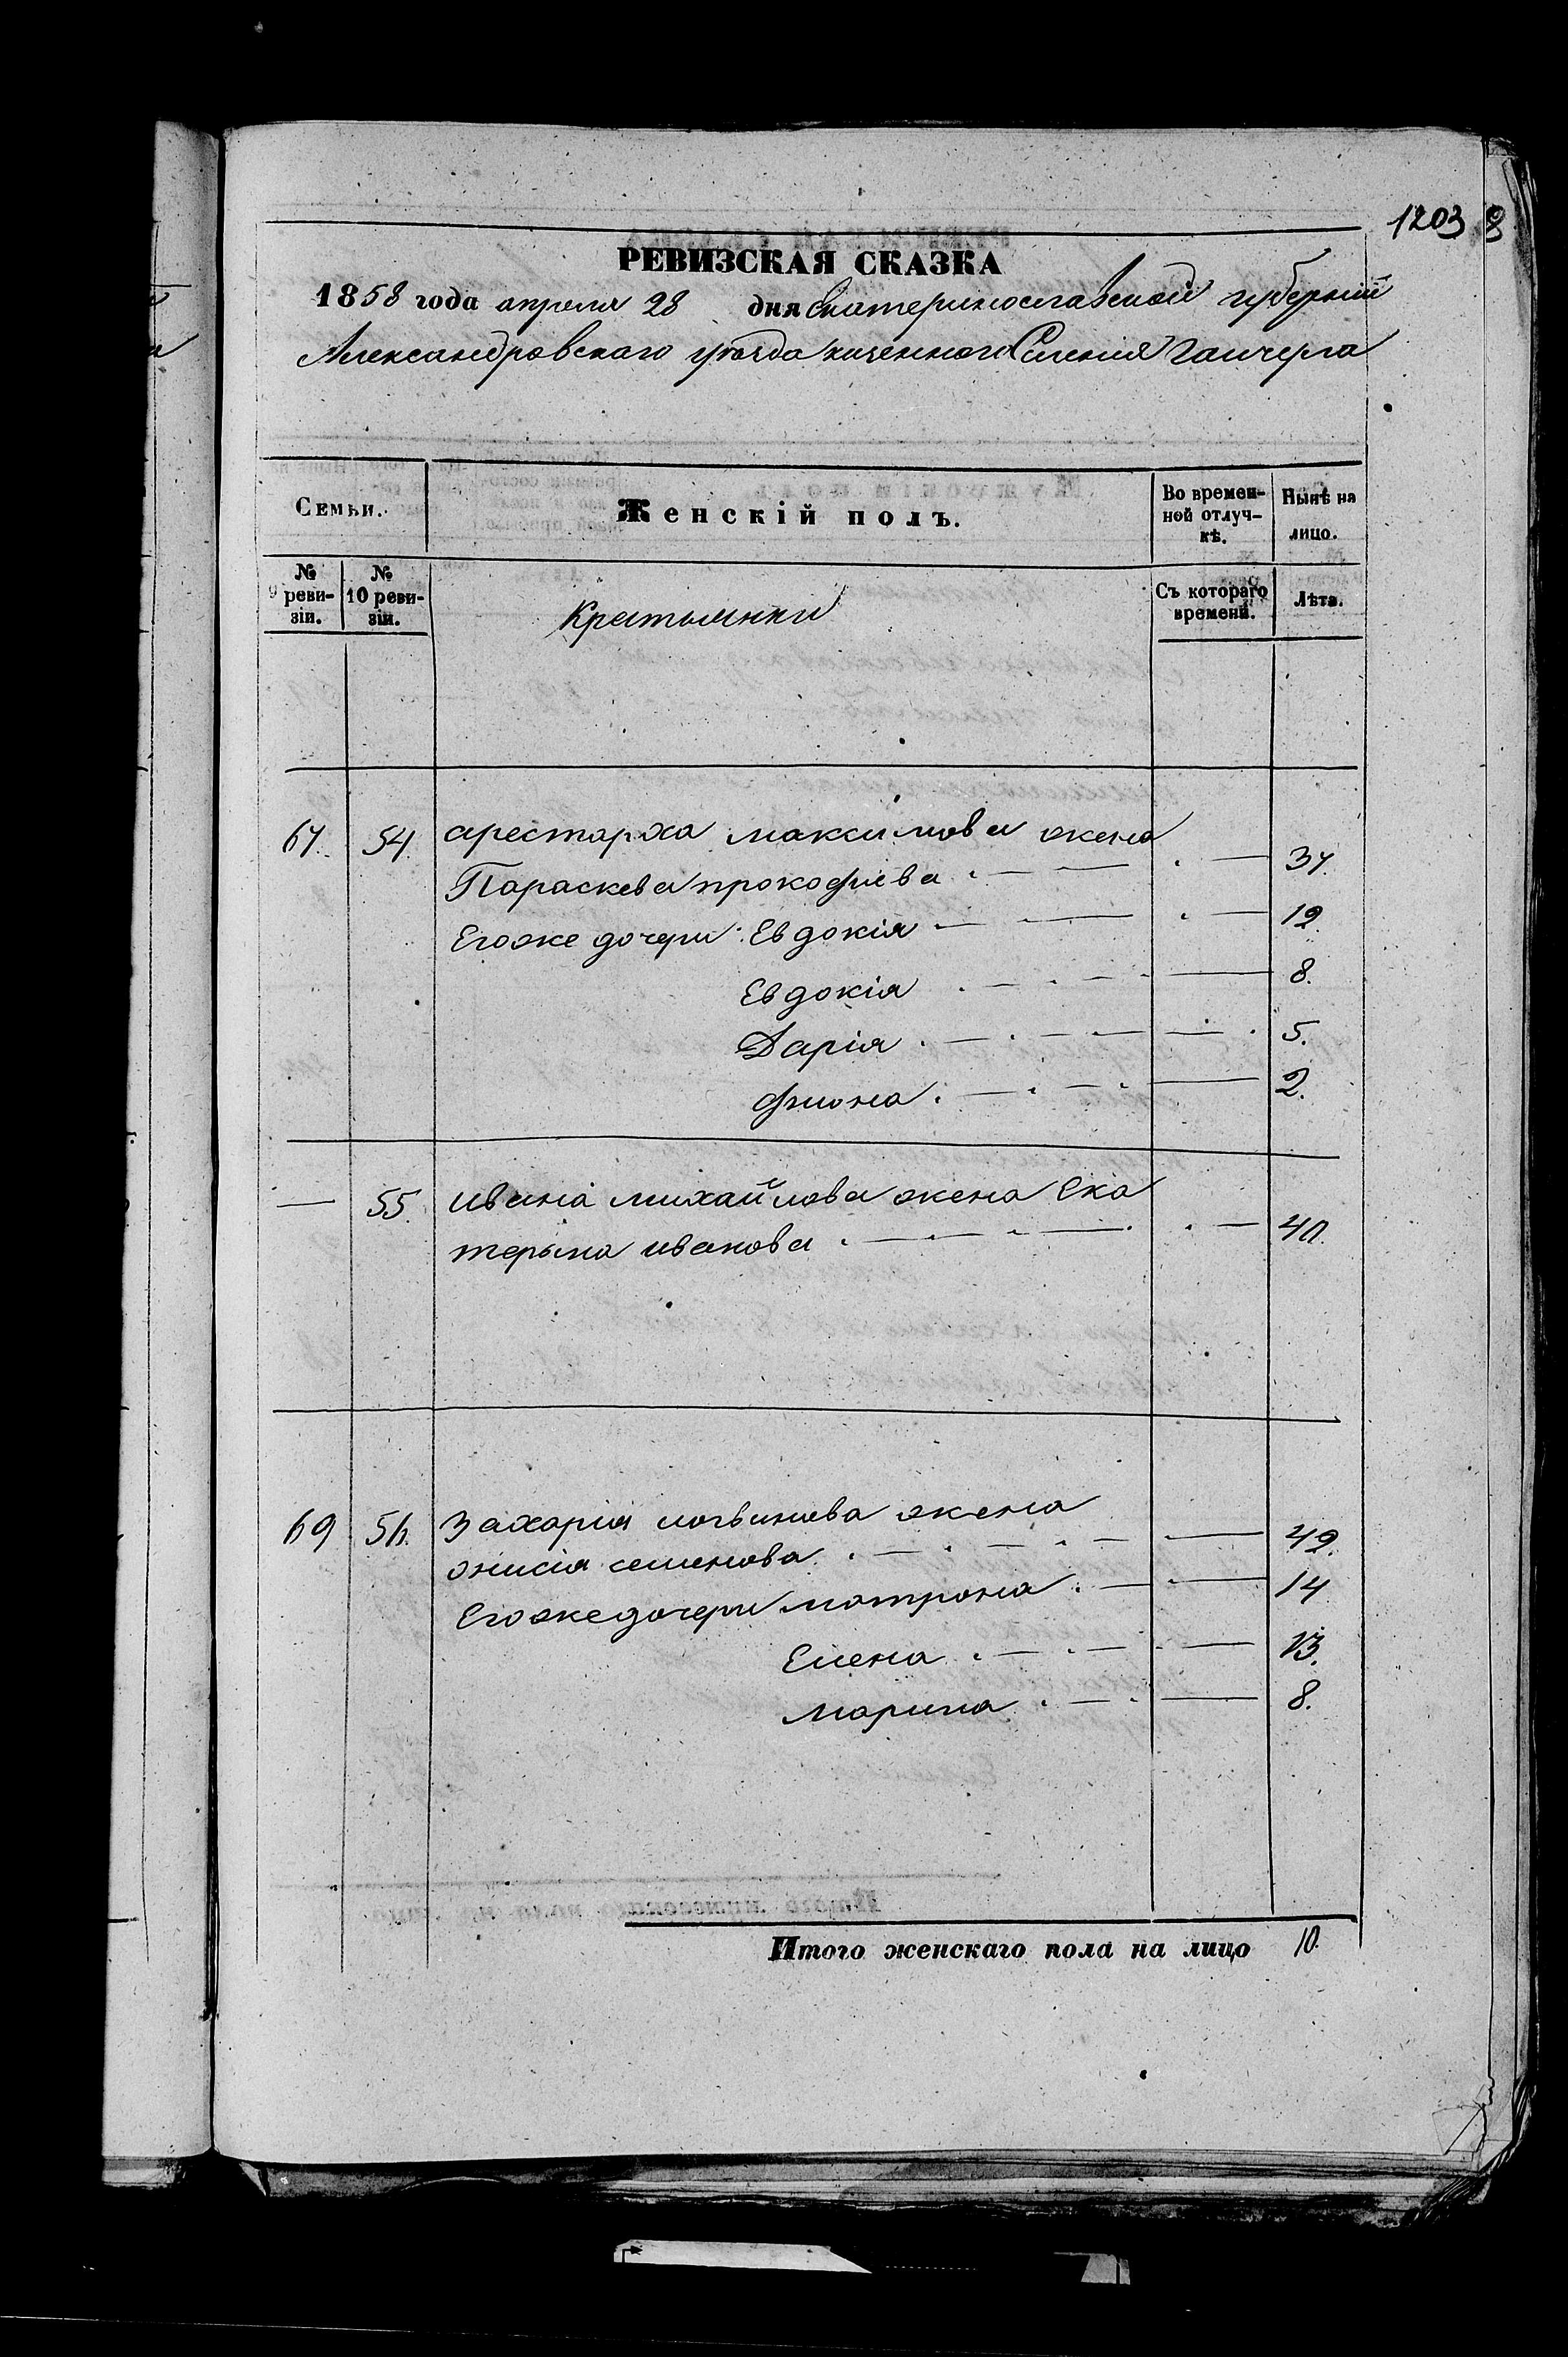 1203
РЕВИЗСКАЯ СКАЗКА
1858 года апреля 28 дня Екатеринославской губерніи
Александровскаго уезда казенного Селенія Гайчула
Семьи. Женскій полъ. Во времен-ной отлуч-кѣ. Нынѣ на лицо.
№ 9 реви-зіи. № 10 реви-зіи. Крестьянки Съ котораго времени. Лѣта.
67. 54. арестарха максимова жена
Параскева прокофиева 37.
Егоже дочери: Евдокія 12.
Евдокія 8.
Дарія 5.
фиона 2.
55. ивана михайлова жена Ека
терына иванова 40.
69 56. Захарія логвинова жена
онисія семенова 49.
Егоже дочери матрона 14
Елена 13.
марина 8.
Итого женскаго пола на лицо 10.